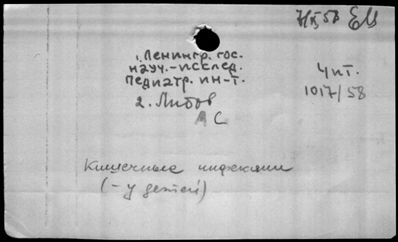 7/IX 58 ЕМ
1. Ленингр. гос.
науч.-исслед.
педиатр. ин-т.
Чит.
1017/58
2. Либов
АС
Кишечные инфекции
(- у детей)